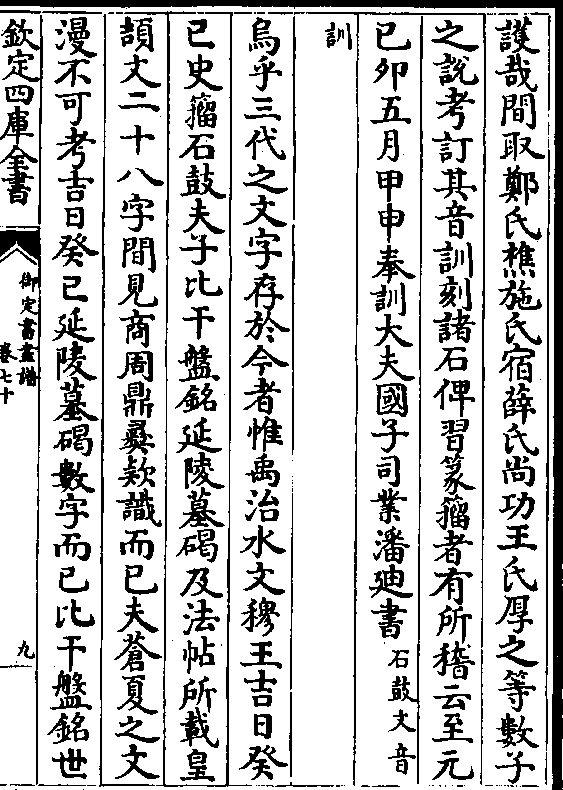 護哉間取鄭氏樵施氏宿薛氏尚功王氏厚之等數子
之說考訂其音訓刻諸石俾習篆籀者有所稽云至元
己卯五月甲申奉訓大夫國子司業潘迪書石鼓文音
訓
烏乎三代之文字存於今者惟禹治水文穆王吉日癸
巳史籀石鼓夫子比干盤銘延陵墓碣及法帖所載皇
頡文二十八字間見商周鼎彝欵識而已夫蒼夏之文
漫不可考吉日癸巳延陵墓碣數字而已比干盤銘世
欽定四庫全書
御定書畫譜
卷七十
九